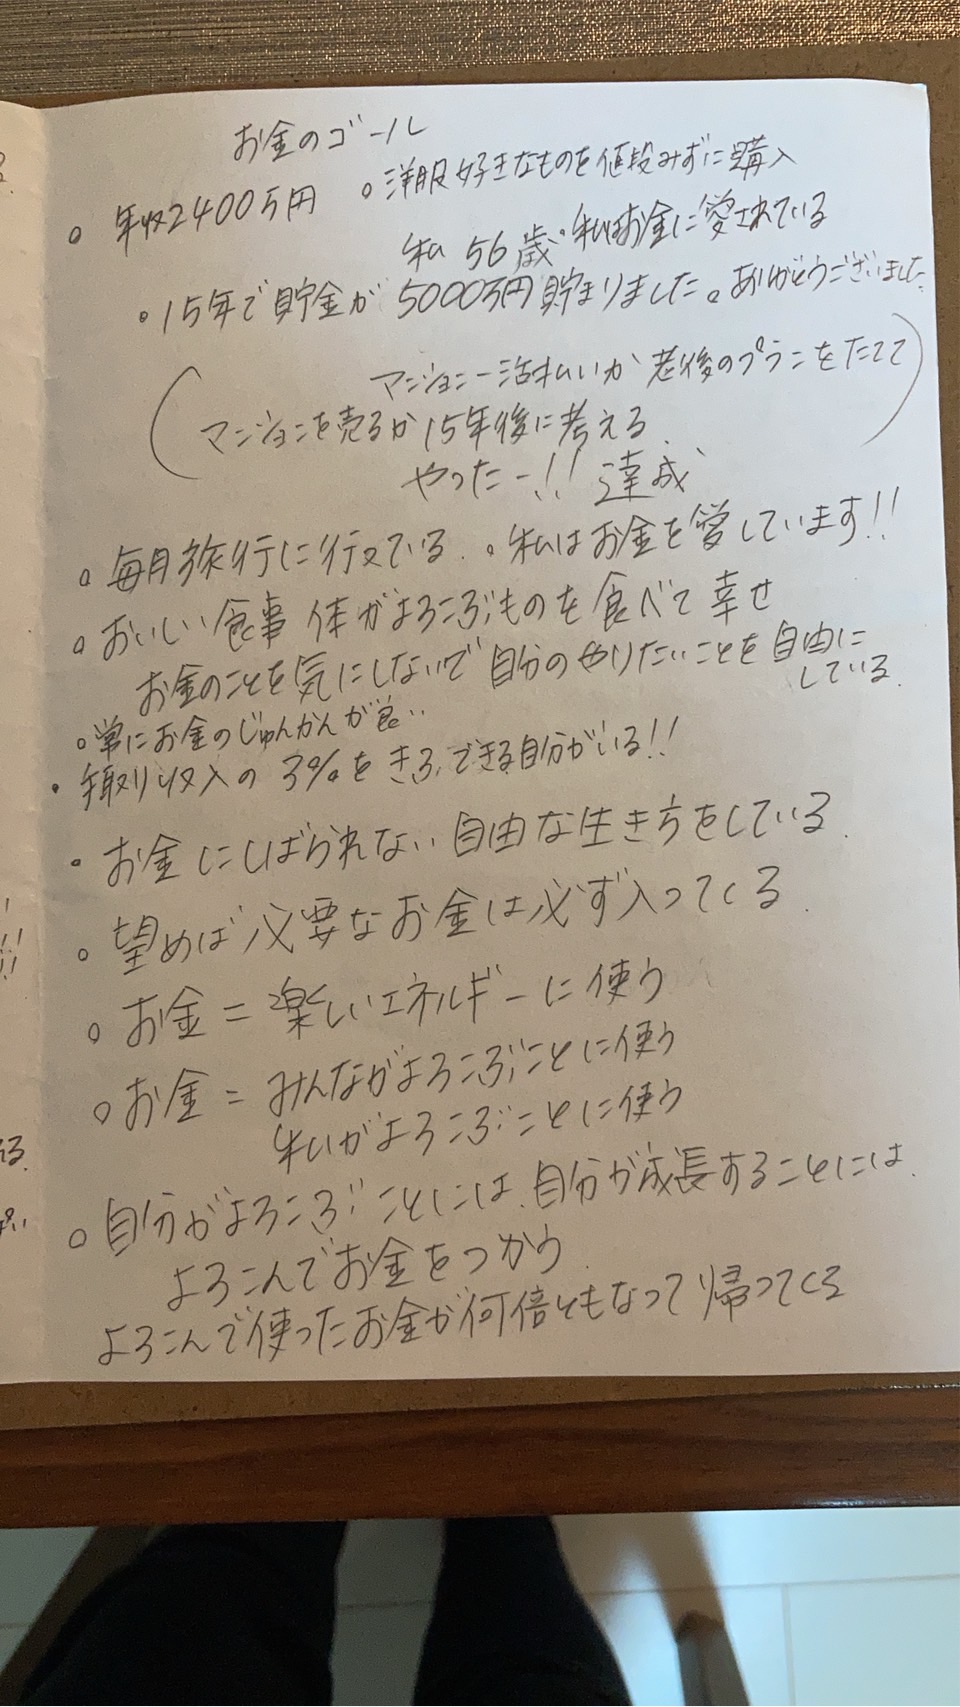 お金のゴール
。年収2400万円 。洋服好きなものを値段みずに購入
私 56歳・私はお金に愛されている
。15年で貯金が5000万円貯まりました。ありがとうございました
(マンション一括払いか老後のプランをたてて
マンションを売るか15年後に考える)
やったー!! 達成
。毎月旅行に行ってる。 。私はお金を愛しています!!
。おいしい食事 体がよろこぶものを食べて幸せ
お金のことを気にしないで自分のやりたいことを自由に
している。
。常にお金のじゅんかんが良い
・手取り収入の3%をきふできる自分がいる!!
。お金にしばられない自由な生き方をしている。
。望めば必要なお金は必ず入ってくる。
。お金=楽しいエネルギーに使う
。お金=みんながよろこぶことに使う
私がよろこぶことに使う
。自分がよろこぶことには、自分が成長することには、
よろこんでお金をつかう
よろこんで使ったお金が何倍ともなって帰ってくる